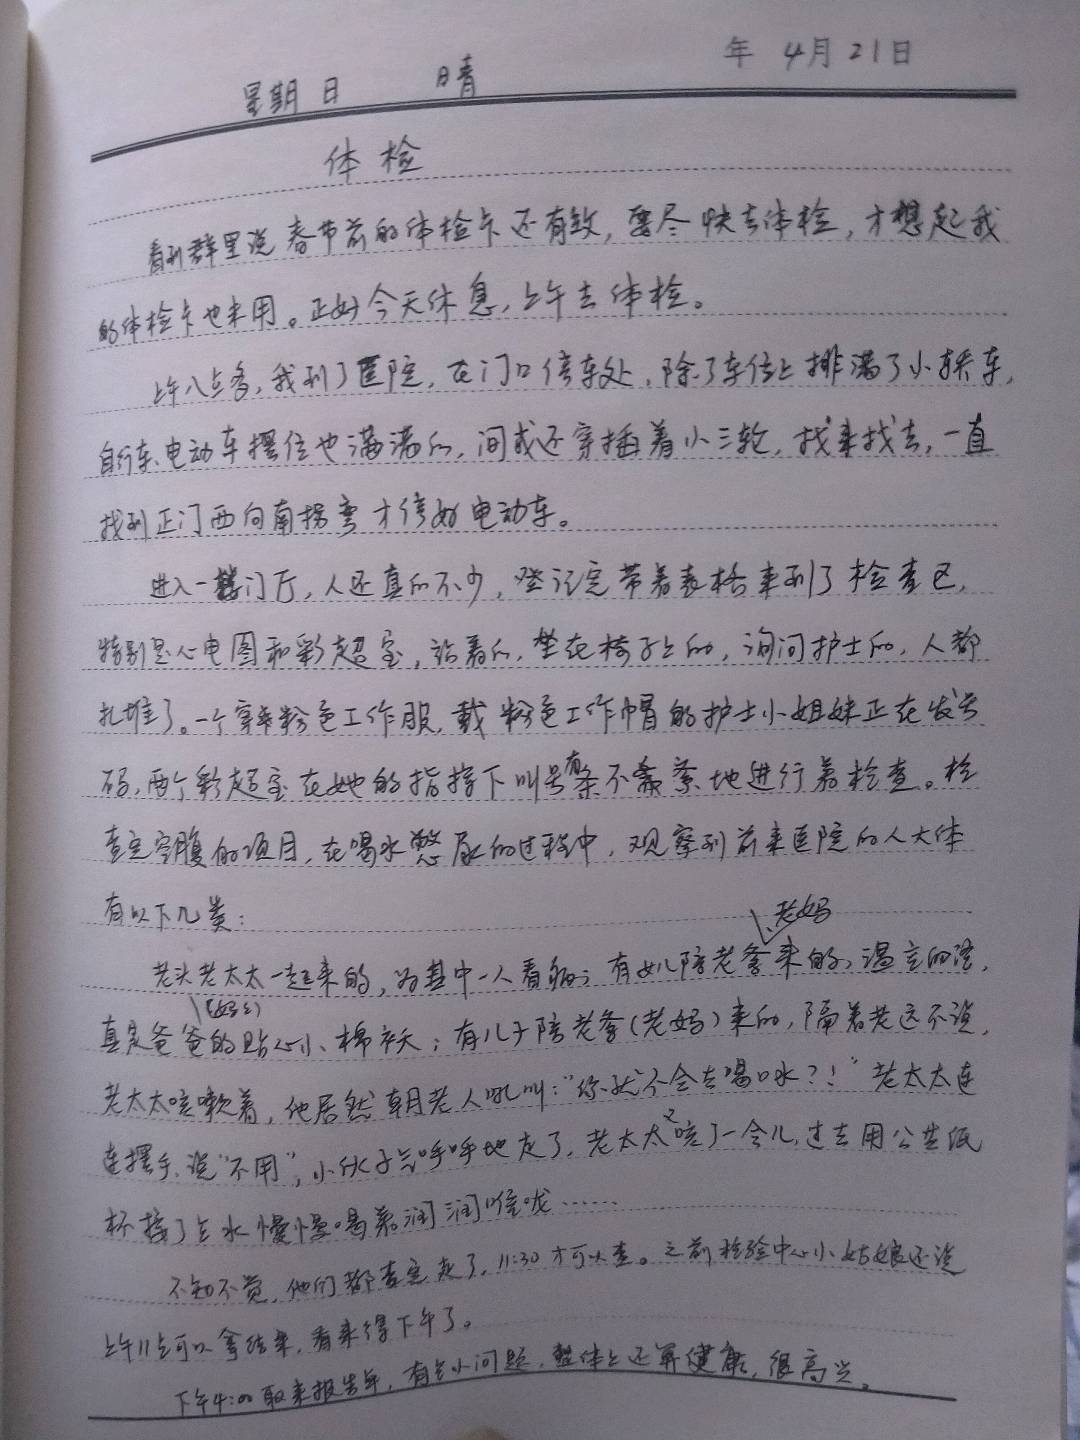 年 4月21日
星期日 晴
体检
看到群里说春节前的体检卡还有效，要尽快去体检，才想起我
的体检卡也未用。正好今天休息，上午去体检。
上午八点多，我到了医院，在门口停车处，除了车位上排满了小轿车，
自行车、电动车摆位也满满的，间或还穿插着小三轮，找来找去，一直
找到正门西向南拐弯才停好电动车。
进入一楼门厅，人还真的不少，登记完带着表格来到了检查区，
特别是心电图和彩超室，站着的，坐在椅子上的，询问护士的，人都
扎堆了。一个穿粉色工作服，戴粉色工作帽的护士小姐妹正在发号
码，两个彩超室在她的指挥下叫号有条不紊地进行着检查。检
查完空腹的项目，在喝水憋尿的过程中，观察到前来医院的人大体
有以下几类：
老妈
老头老太太一起来的，为其中一人看病；有女儿陪老爹来的，温言细语，
（妈妈）
真是爸爸的贴心小棉袄；有儿子陪老爹（老妈）来的，隔着老远不说，
老太太咳嗽着，他居然朝老人吼叫：“你就不会去喝口水？！”老太太连
连摆手，说“不用”，小伙子气呼呼地走了，老太太又咳了一会儿，过去用公共纸
杯接了点水慢慢喝着润润喉咙……
不知不觉，他们都查完走了，11:30才可以查。之前检验中心小姑娘还说
上午11点可以拿结果，看来得下午了。
下午4:00取来报告单，有点小问题，整体上还算健康，很高兴。